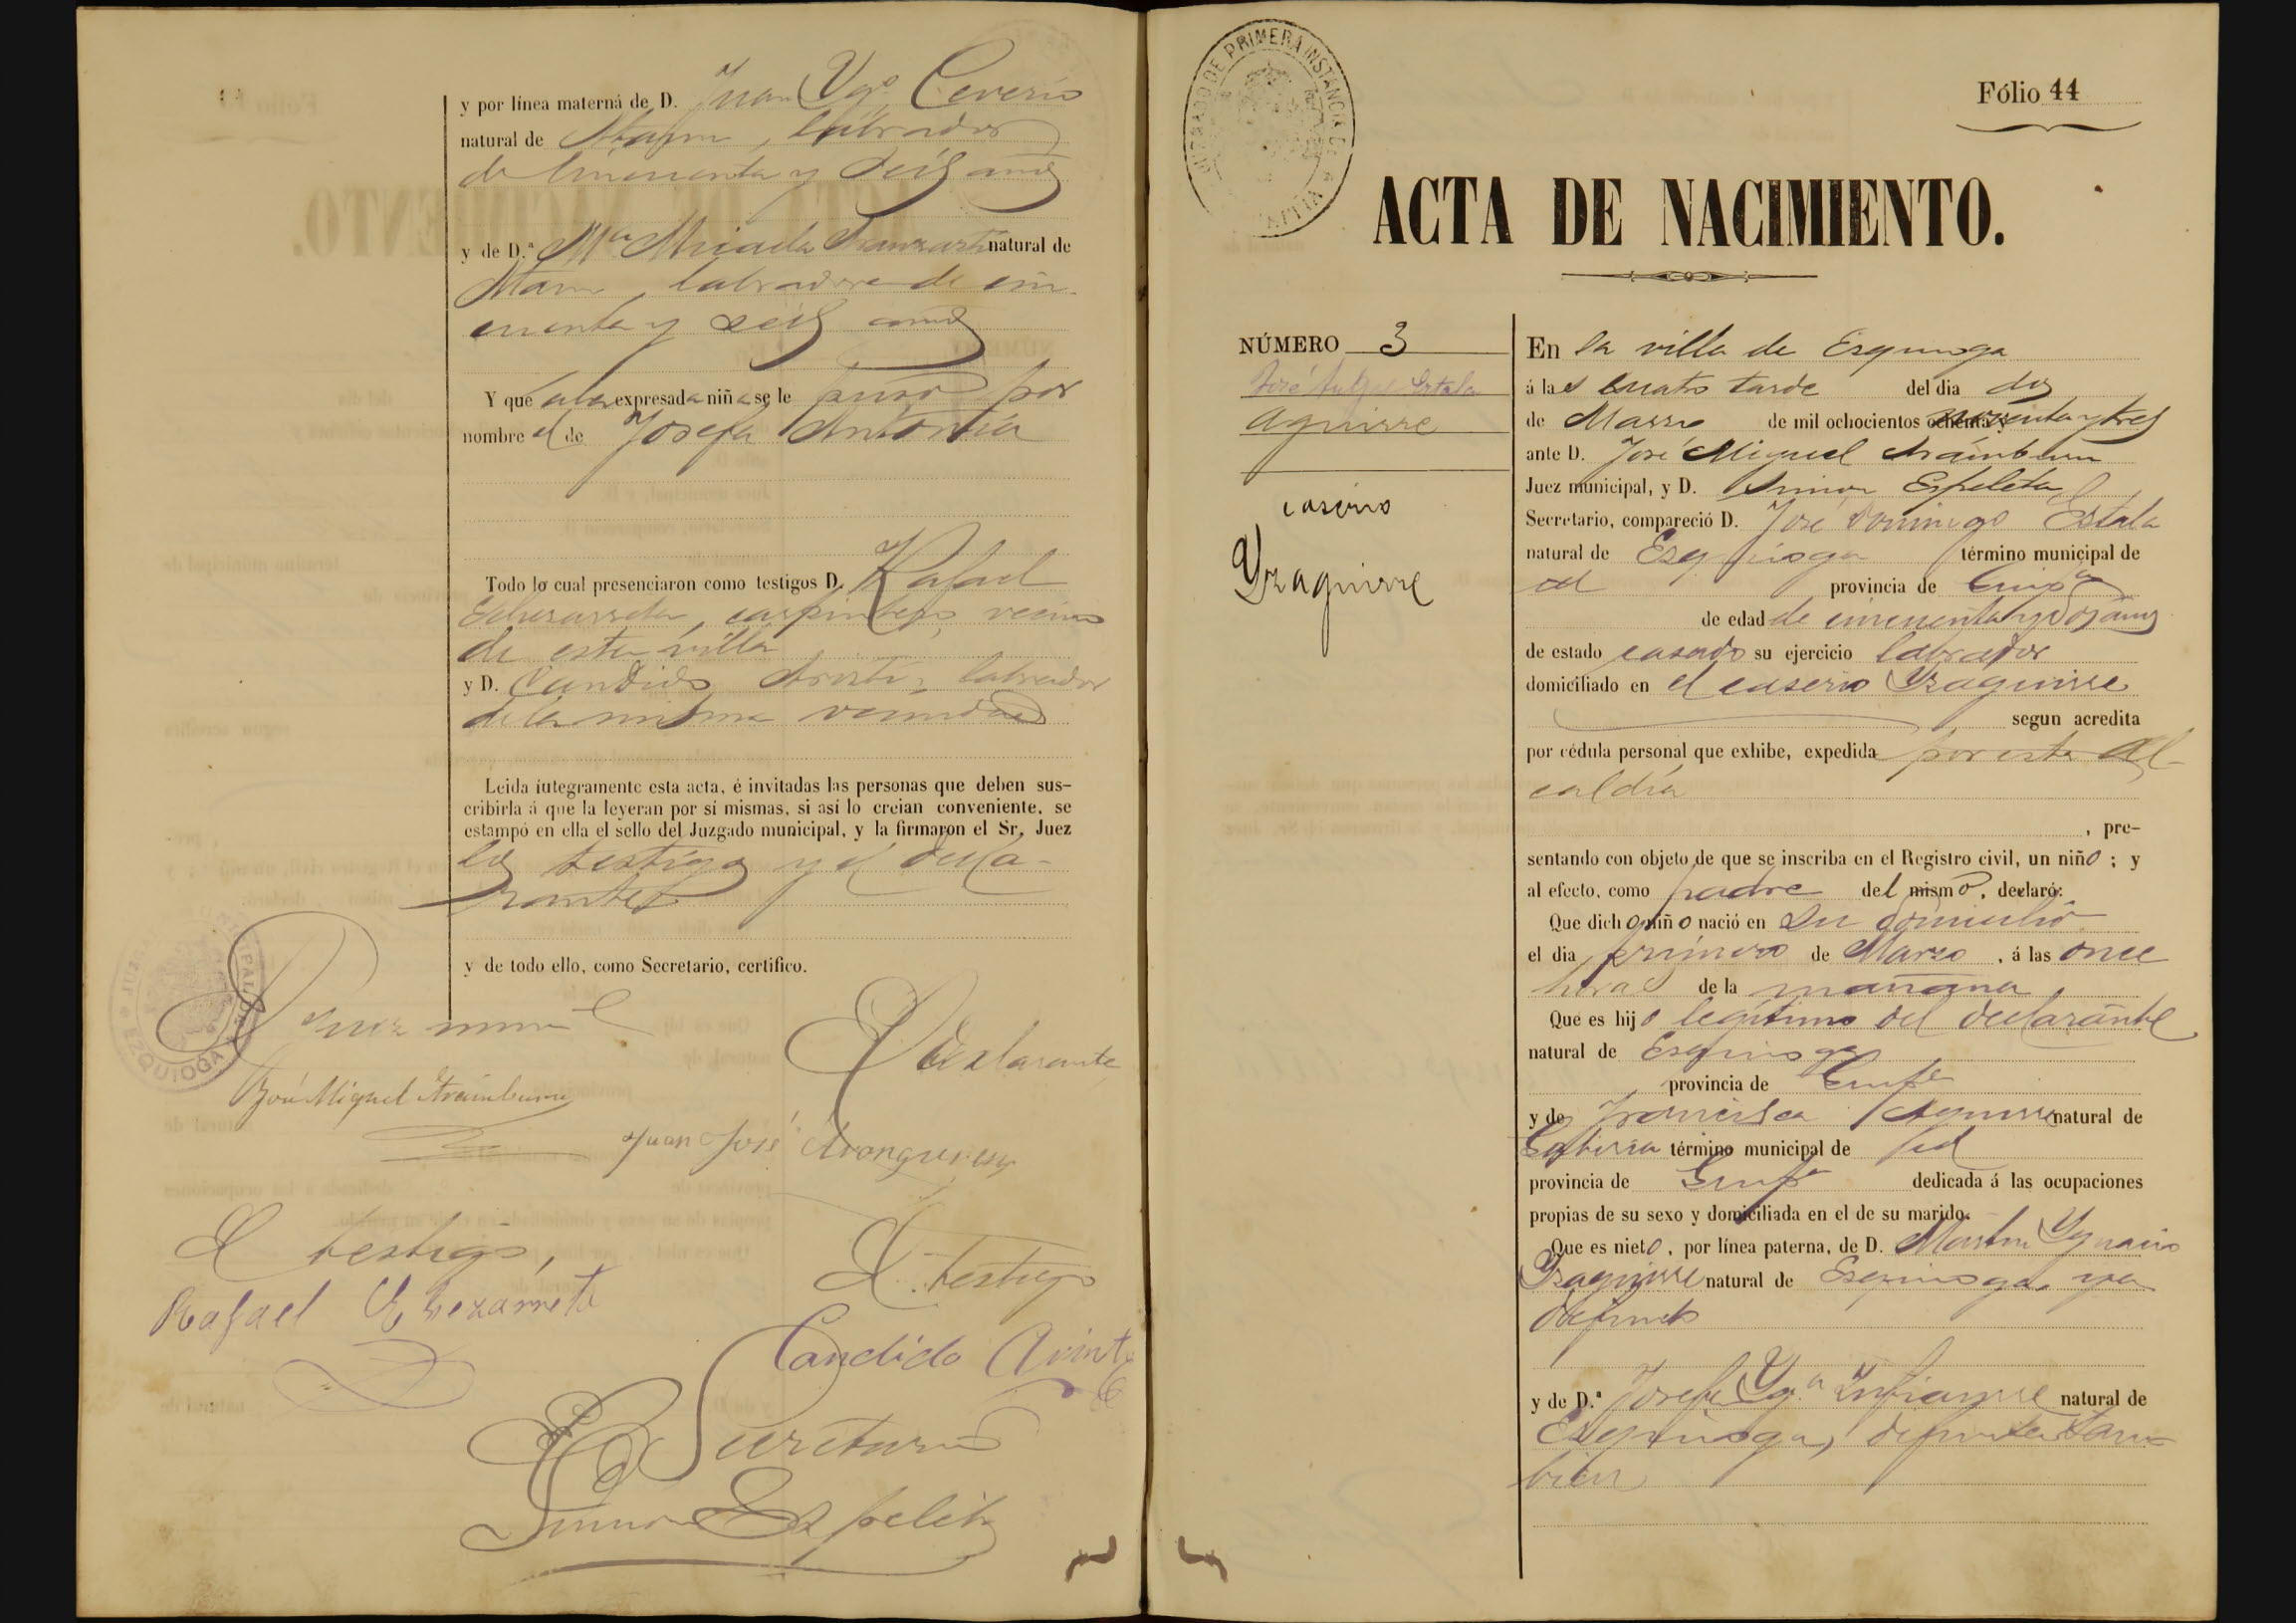 y por línea materna de D. Juan Ygº Ceverio
natural de Ataun, labrador
de cincuenta y seis años
y de D.ª Mª Micaela natural de
Ataun, labradora de cin-
cuenta y seis años
Y que a la expresada niña se le puso por
nombre el de Josefa Antonia
Todo lo cual presenciaron como testigos D. Rafael
Echezarreta, carpintero, vecino
de esta villa
y D. Candido Aristi, labrador
de la misma vecindad
Leida íntegramente esta acta, é invitadas las personas que deben sus-
cribirla á que la leyeran por sí mismas, si así lo creian conveniente, se
estampó en ella el sello del Juzgado municipal, y la firmaron el Sr. Juez
los testigos y el decla-
rante
y de todo ello, como Secretario, certifico.
JUZGADO MUNICIPAL DE EZQUIOGA
El Juez munal
José Miguel Aramburu
El Declarante
Juan José Aranguren
El testigo,
Rafael Echezarreta
El testigo
Candido Aristi
El Secretario
Simon Espeleta
JUZGADO DE PRIMERA INSTANCIA DE
Fólio 44
ACTA DE NACIMIENTO.
NÚMERO 3
José Estala
Aguirre
caserio
Yzaguirre
En la villa de Esquioga
á las cuatro tarde del dia dos
de Marzo de mil ochocientos ochenta y noventa y tres
ante D. José Miguel Arámburu
Juez municipal, y D. Simon Espeleta
Secretario, compareció D. José Domingo Estala
natural de Esquioga término municipal de
id provincia de Guipª
de edad de cincuenta y dos años
de estado casado su ejercicio labrador
domiciliado en el caserio Yzaguirre
segun acredita
por cédula personal que exhibe, expedida por esta Al-
caldía
, pre-
sentando con objeto de que se inscriba en el Registro civil, un niño; y
al efecto, como padre del mismo, declaró:
Que dicho niño nació en su domicilio
el dia primero de Marzo, á las once
horas de la mañana,
Que es hijo legítimo del declarante
natural de Esquioga
provincia de Guipª
y de Francisca Aguirre natural de
Gabiria término municipal de id
provincia de Guipª dedicada á las ocupaciones
propias de su sexo y domiciliada en el de su marido.
Que es nieto, por línea paterna, de D. Martin Ygnacio
Yzaguirre natural de Esquioga, ya
difunto
y de D.ª Josefa Ygª natural de
Esquioga, difunta tam-
bien